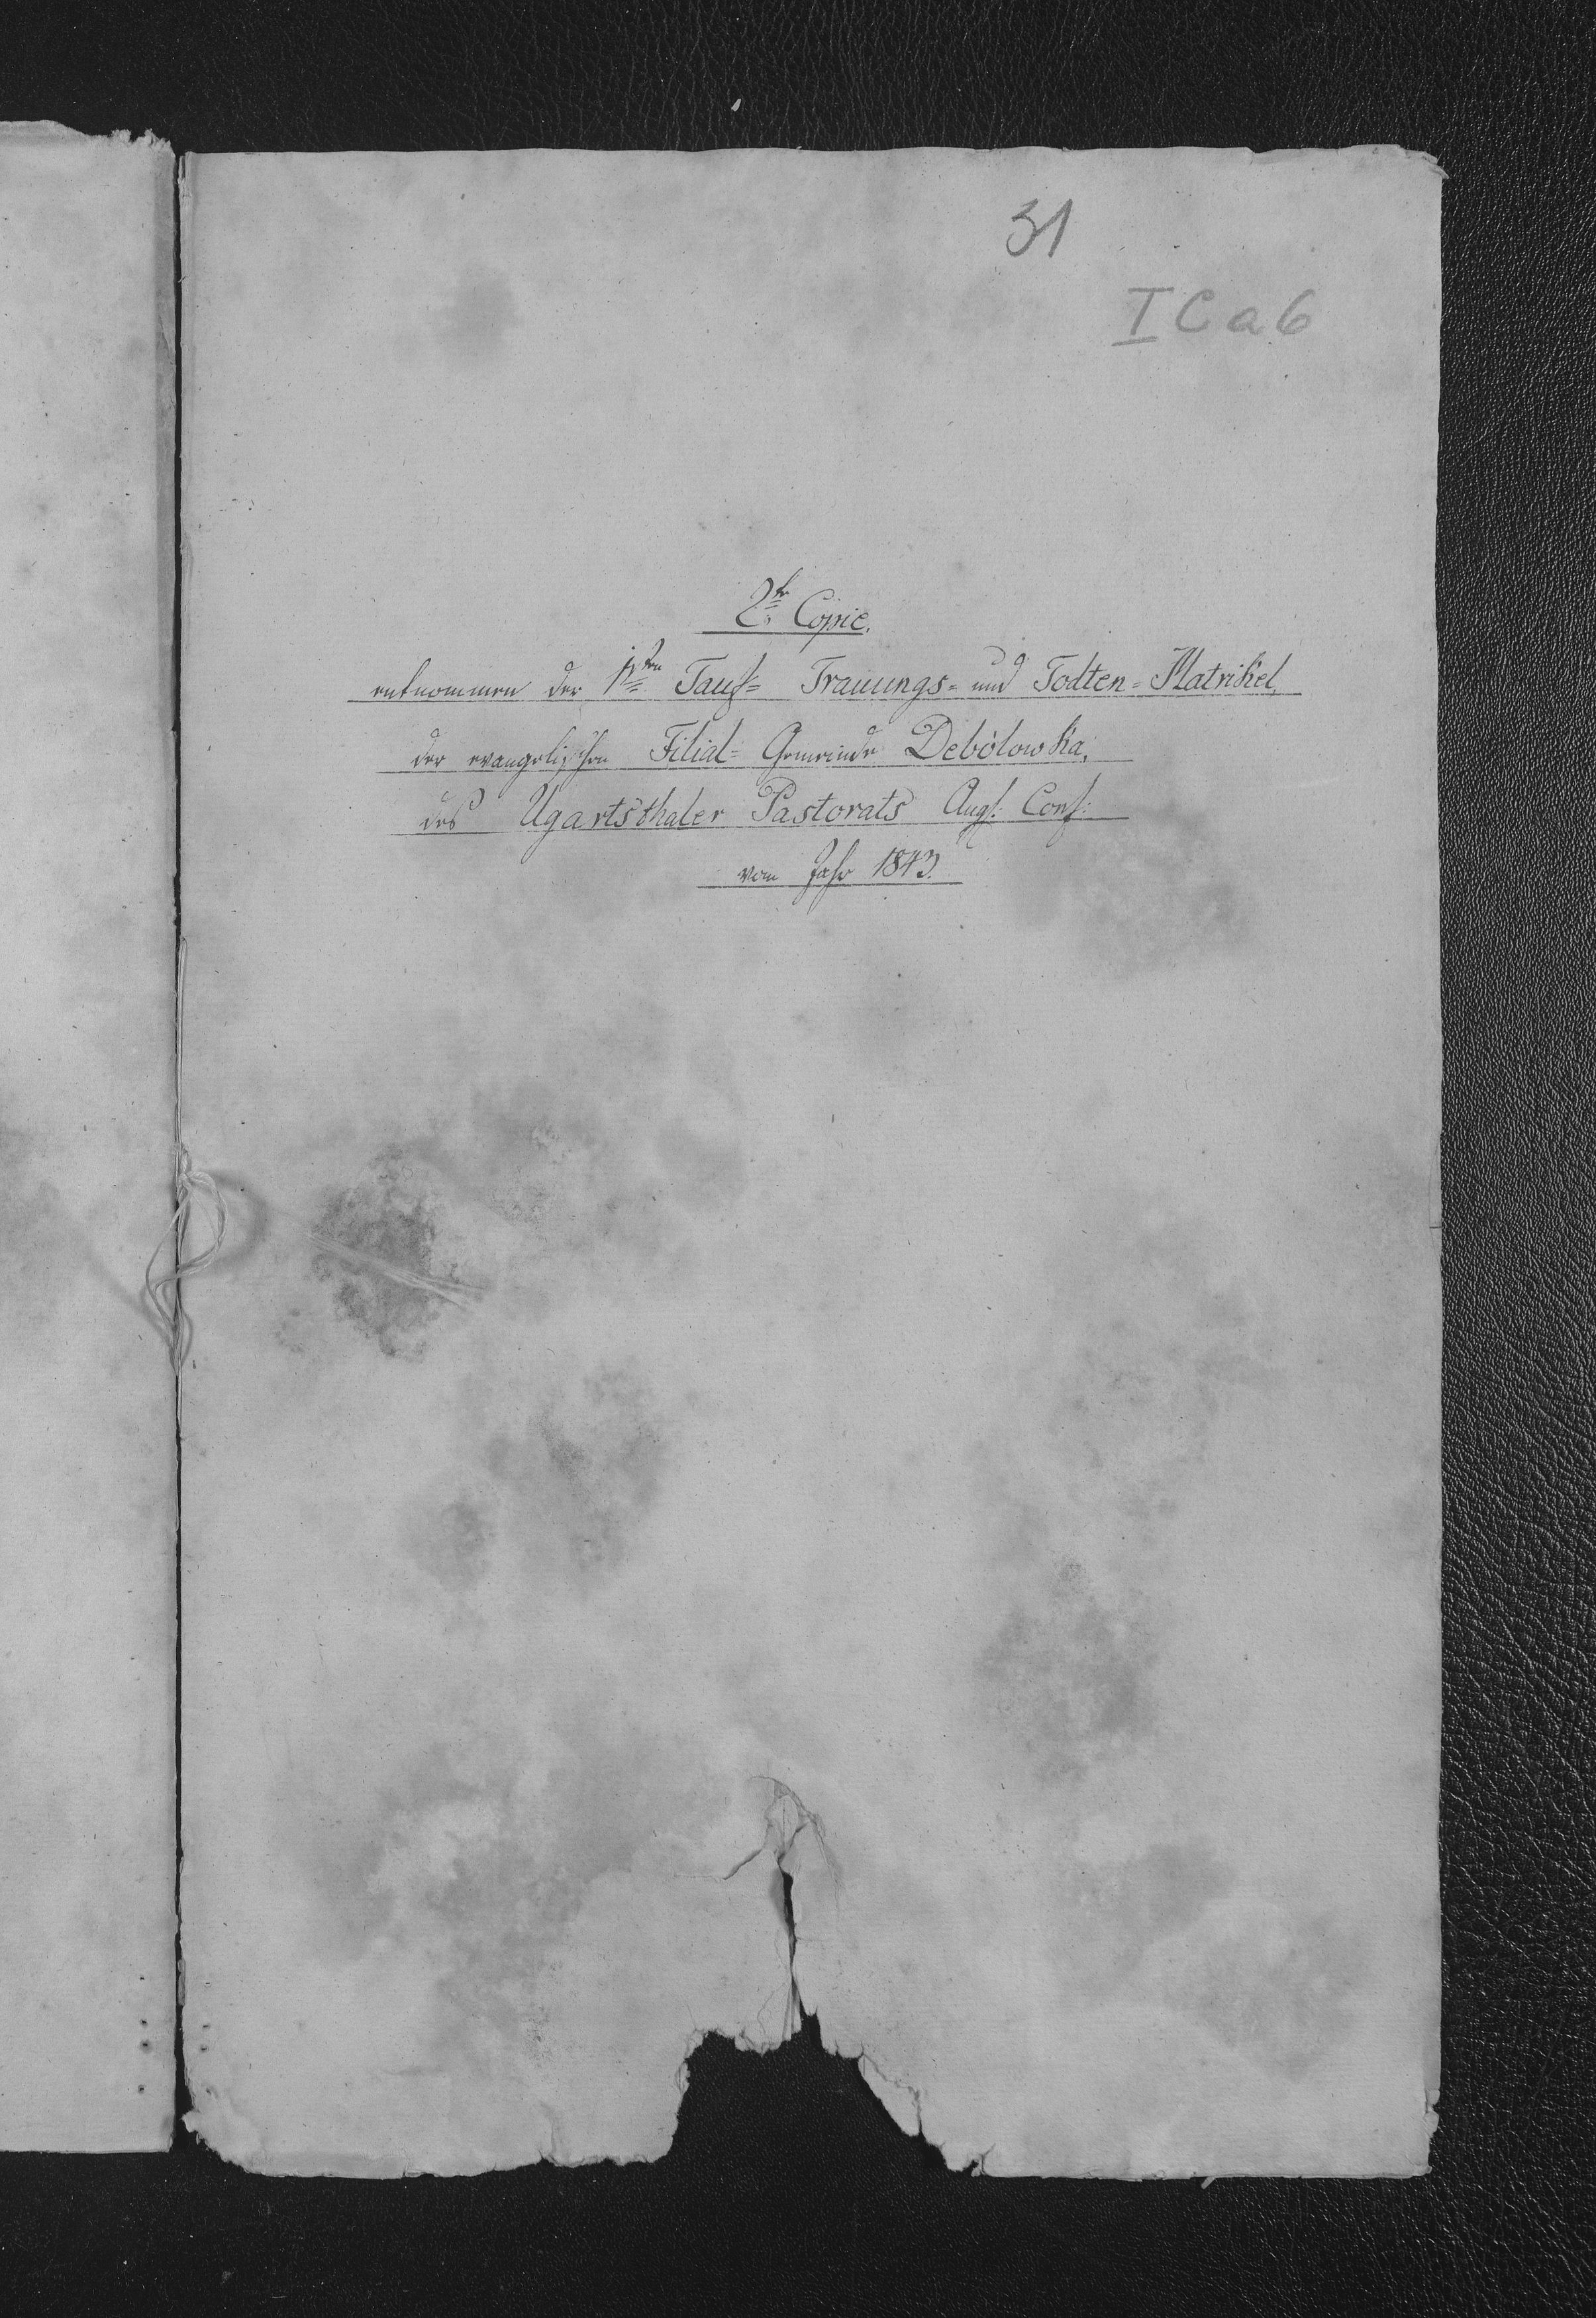 31
I C a 6
2te Copie.
entnommen der 1ten Tauf= Trauungs= und Todten=Matrikel,
der evangelischen Filial= Gemeinde Debolowka,
des Ugartsthaler Pastorats Augs: Conf:
vom Jahr 1843.